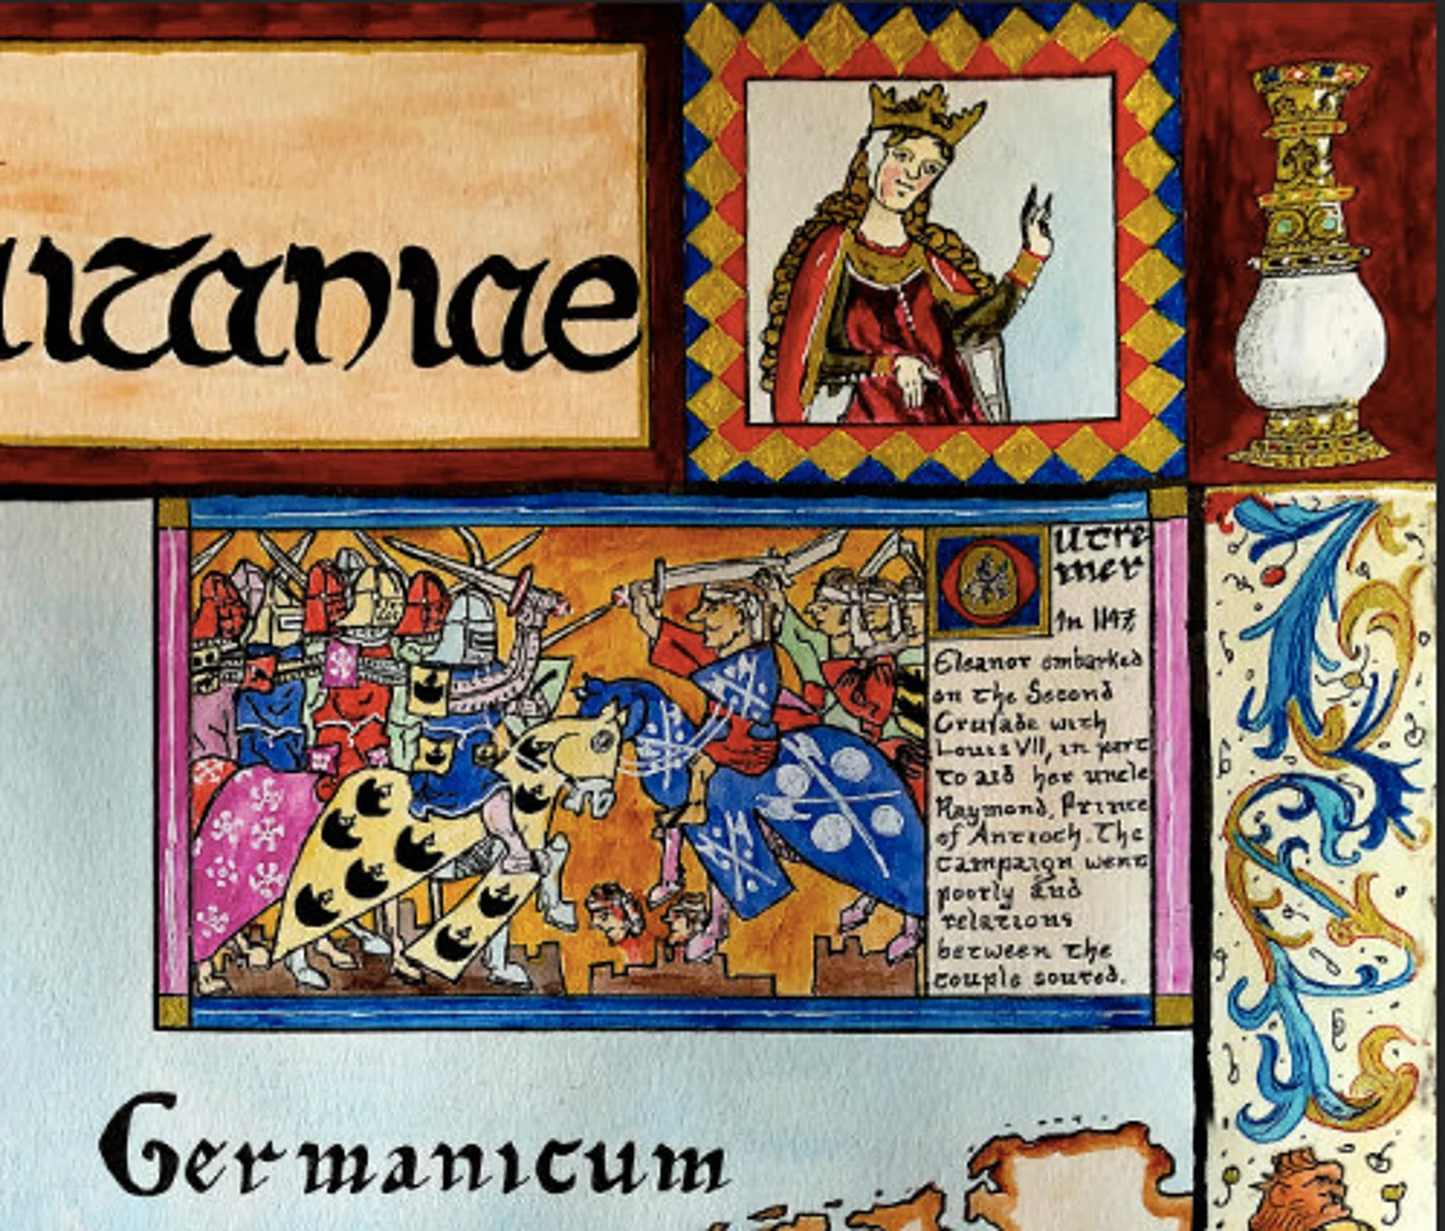 uitaniae
Outre
mer
In 1147,
Eleanor embarked
on the Second
Crusade with
Louis VII, in part
to aid her uncle
Raymond, Prince
of Antioch. The
campaign went
poorly and
relations
between the
couple soured.
Germanicum